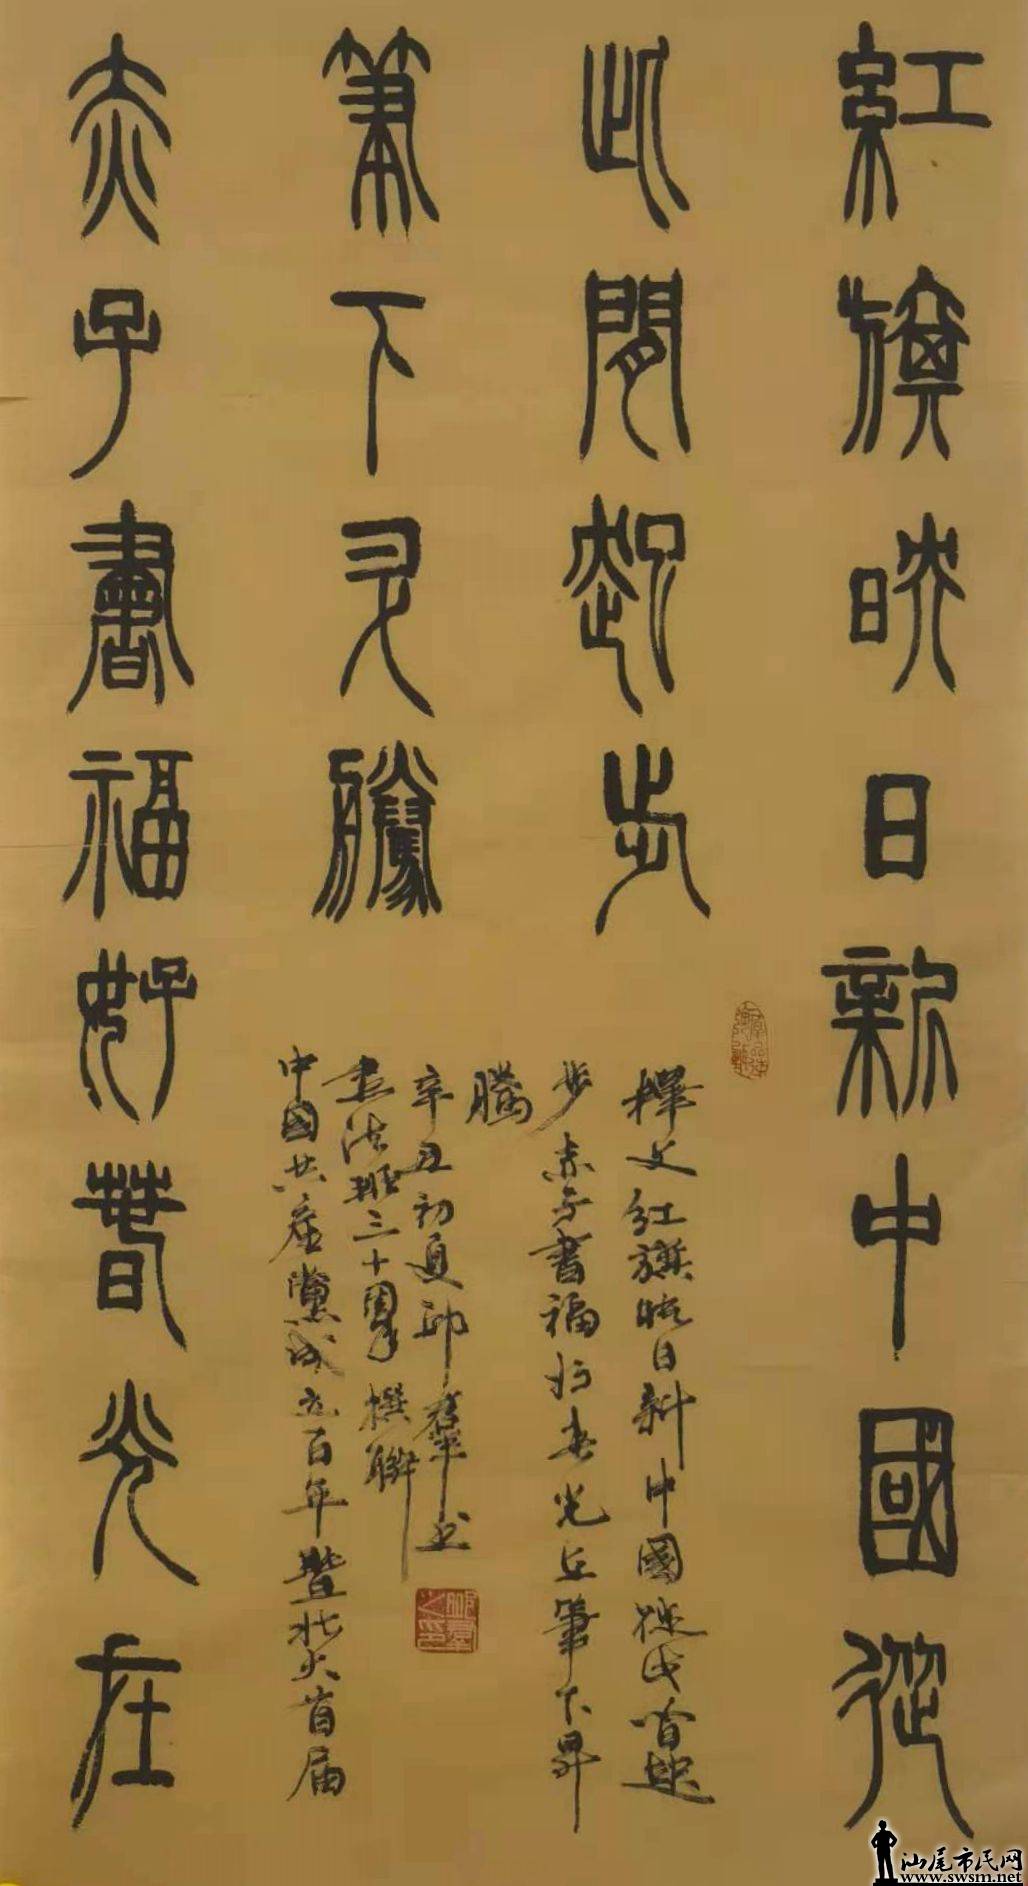 紅旗映日新中國從
此間起步
赤子書福好春光在
筆下昇騰
釋文紅旗映日新中國從此間起
步赤子書福好春光在筆下昇
騰
中國共産黨成立百年暨北大首届
書法班三十周年撰聯
辛丑初夏邱羣书
邱羣之印
汕尾市民网
www.swsm.net